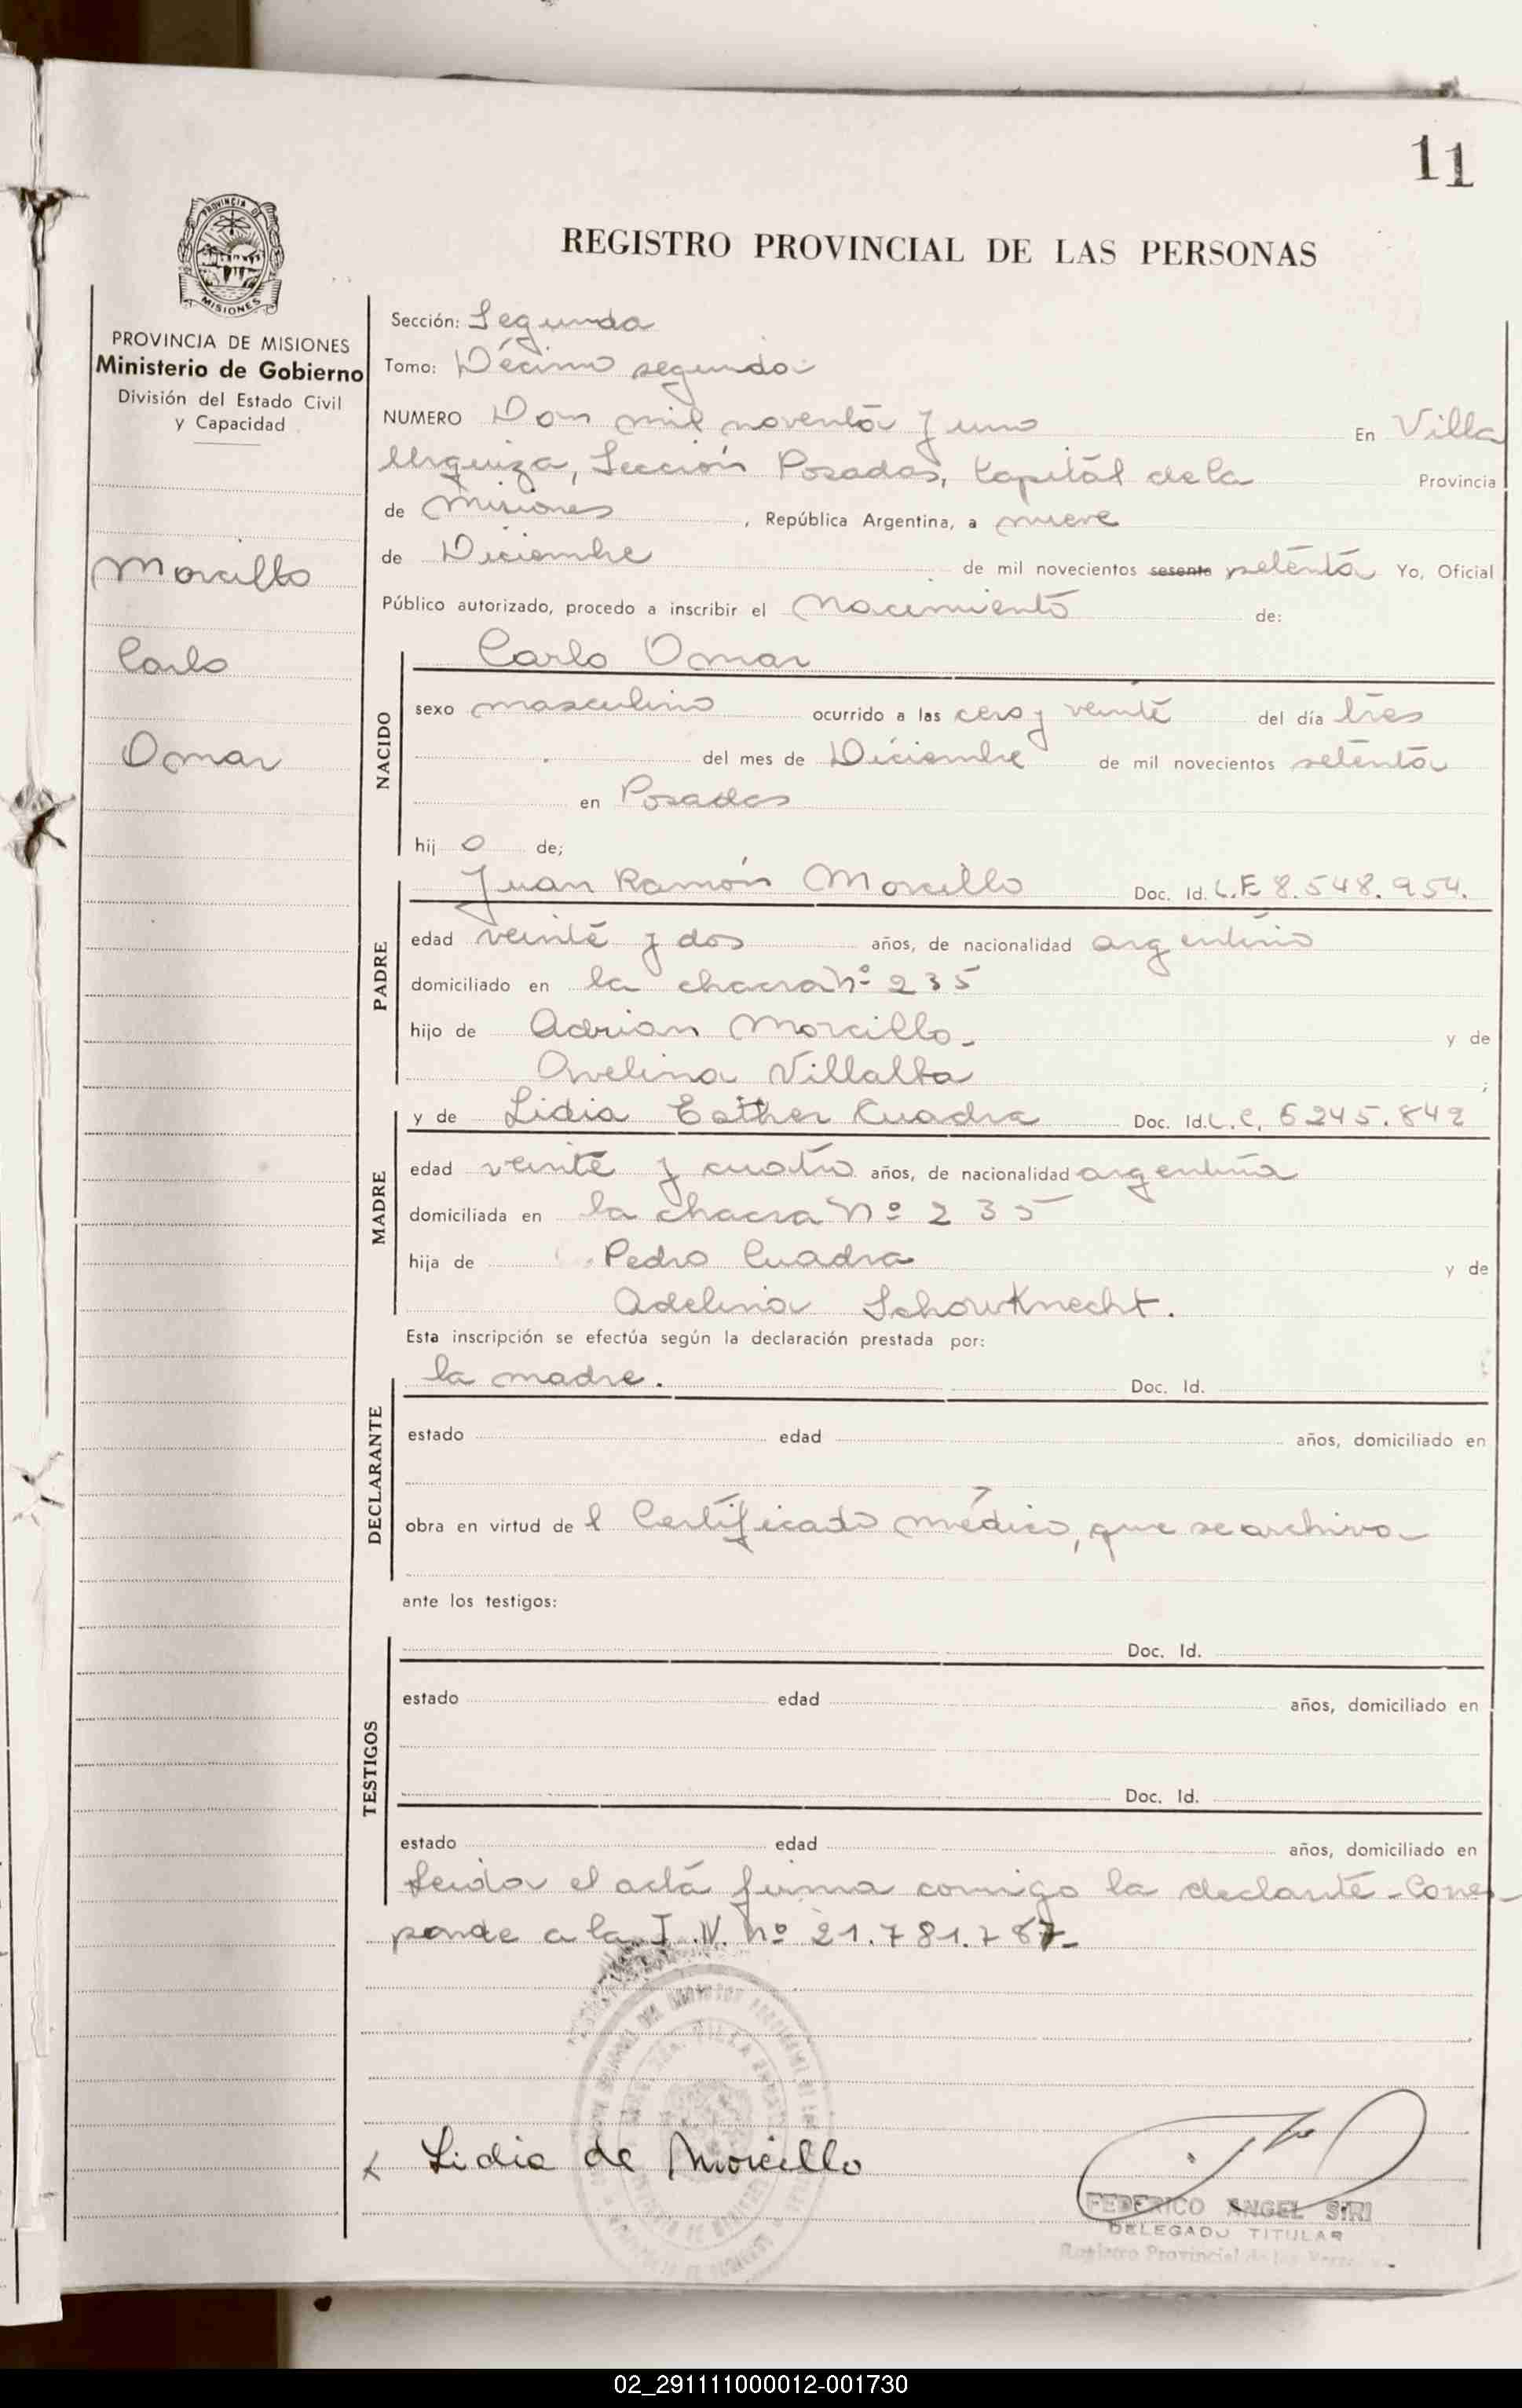 11
PROVINCIA DE
MISIONES
REGISTRO PROVINCIAL DE LAS PERSONAS
PROVINCIA DE MISIONES
Ministerio de Gobierno
División del Estado Civil
y Capacidad
Morcillo
Carlo
Omar
Sección: Segunda
Tomo: Décimo segundo
NUMERO Dos mil noventa y uno En Villa
Urquiza, Sección Posadas, Capital de la Provincia
de Misiones, República Argentina, a nueve
de Diciembre de mil novecientos sesenta setenta Yo, Oficial
Público autorizado, procedo a inscribir el Nacimiento de:
NACIDO
Carlo Omar
sexo masculino ocurrido a las cero y veinte del día tres
del mes de Diciembre de mil novecientos setenta
en Posadas
hij o de;
PADRE
Juan Ramón Morcillo Doc. Id. L.E 8.548.954.
edad veinte y dos años, de nacionalidad argentino
domiciliado en la chacra Nº 235
hijo de Adrian Morcillo - y de
Avelina Villalba ;
MADRE
y de Lidia Esther Cuadra Doc. Id. L.C. 6245.842
edad veinte y cuatro años, de nacionalidad argentina
domiciliada en la chacra Nº 235
hija de Pedro Cuadra y de
Adelina Schowknecht.
Esta inscripción se efectúa según la declaración prestada por:
DECLARANTE
la madre. Doc. Id.
estado edad años, domiciliado en
obra en virtud de l Certificado médico, que se archiva
ante los testigos:
TESTIGOS
Doc. Id.
estado edad años, domiciliado en
Doc. Id.
estado edad años, domiciliado en
Leida el acta firma comigo la declante - Corres-
ponde a la I.N. Nº 21.781.787-
x Lidia de Morcillo
FEDERICO ANGEL SIRI
DELEGADO TITULAR
Registro Provincial de las
02_291111000012-001730